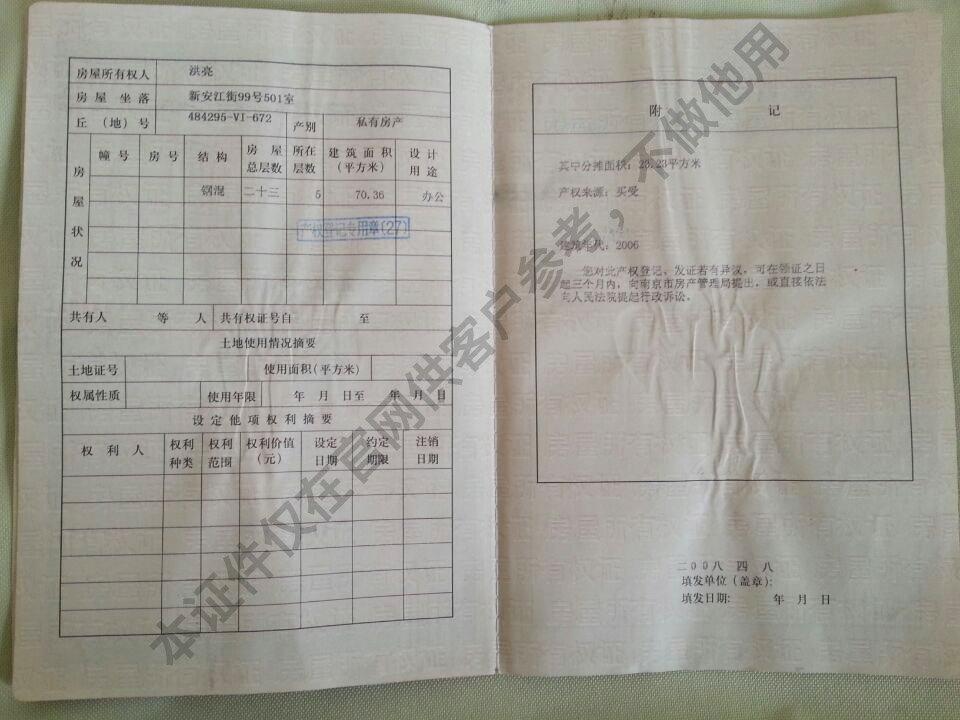 房屋所有权人 洪亮
房屋坐落 新安江街99号501室
丘（地）号 484295-VI-672 产别 私有房产
房屋状况
幢号 房号 结构 房屋总层数 所在层数 建筑面积（平方米） 设计用途
钢混 二十三 5 70.36 办公
产权登记专用章(27)
共有人 等 人 共有权证号自 至
土地使用情况摘要
土地证号 使用面积(平方米)
权属性质 使用年限 年 月 日至 年 月 日
设定他项权利摘要
权利人 权利种类 权利范围 权利价值（元） 设定日期 约定期限 注销日期
附 记
其中分摊面积：23.23平方米
产权来源：买受
建筑年代：2006
您对此产权登记、发证若有异议，可在领证之日
起三个月内，向南京市房产管理局提出，或直接依法
向人民法院提起行政诉讼。
二00八 四 八
填发单位（盖章）：
填发日期： 年 月 日
本证件仅在官网供客户参考，不做他用